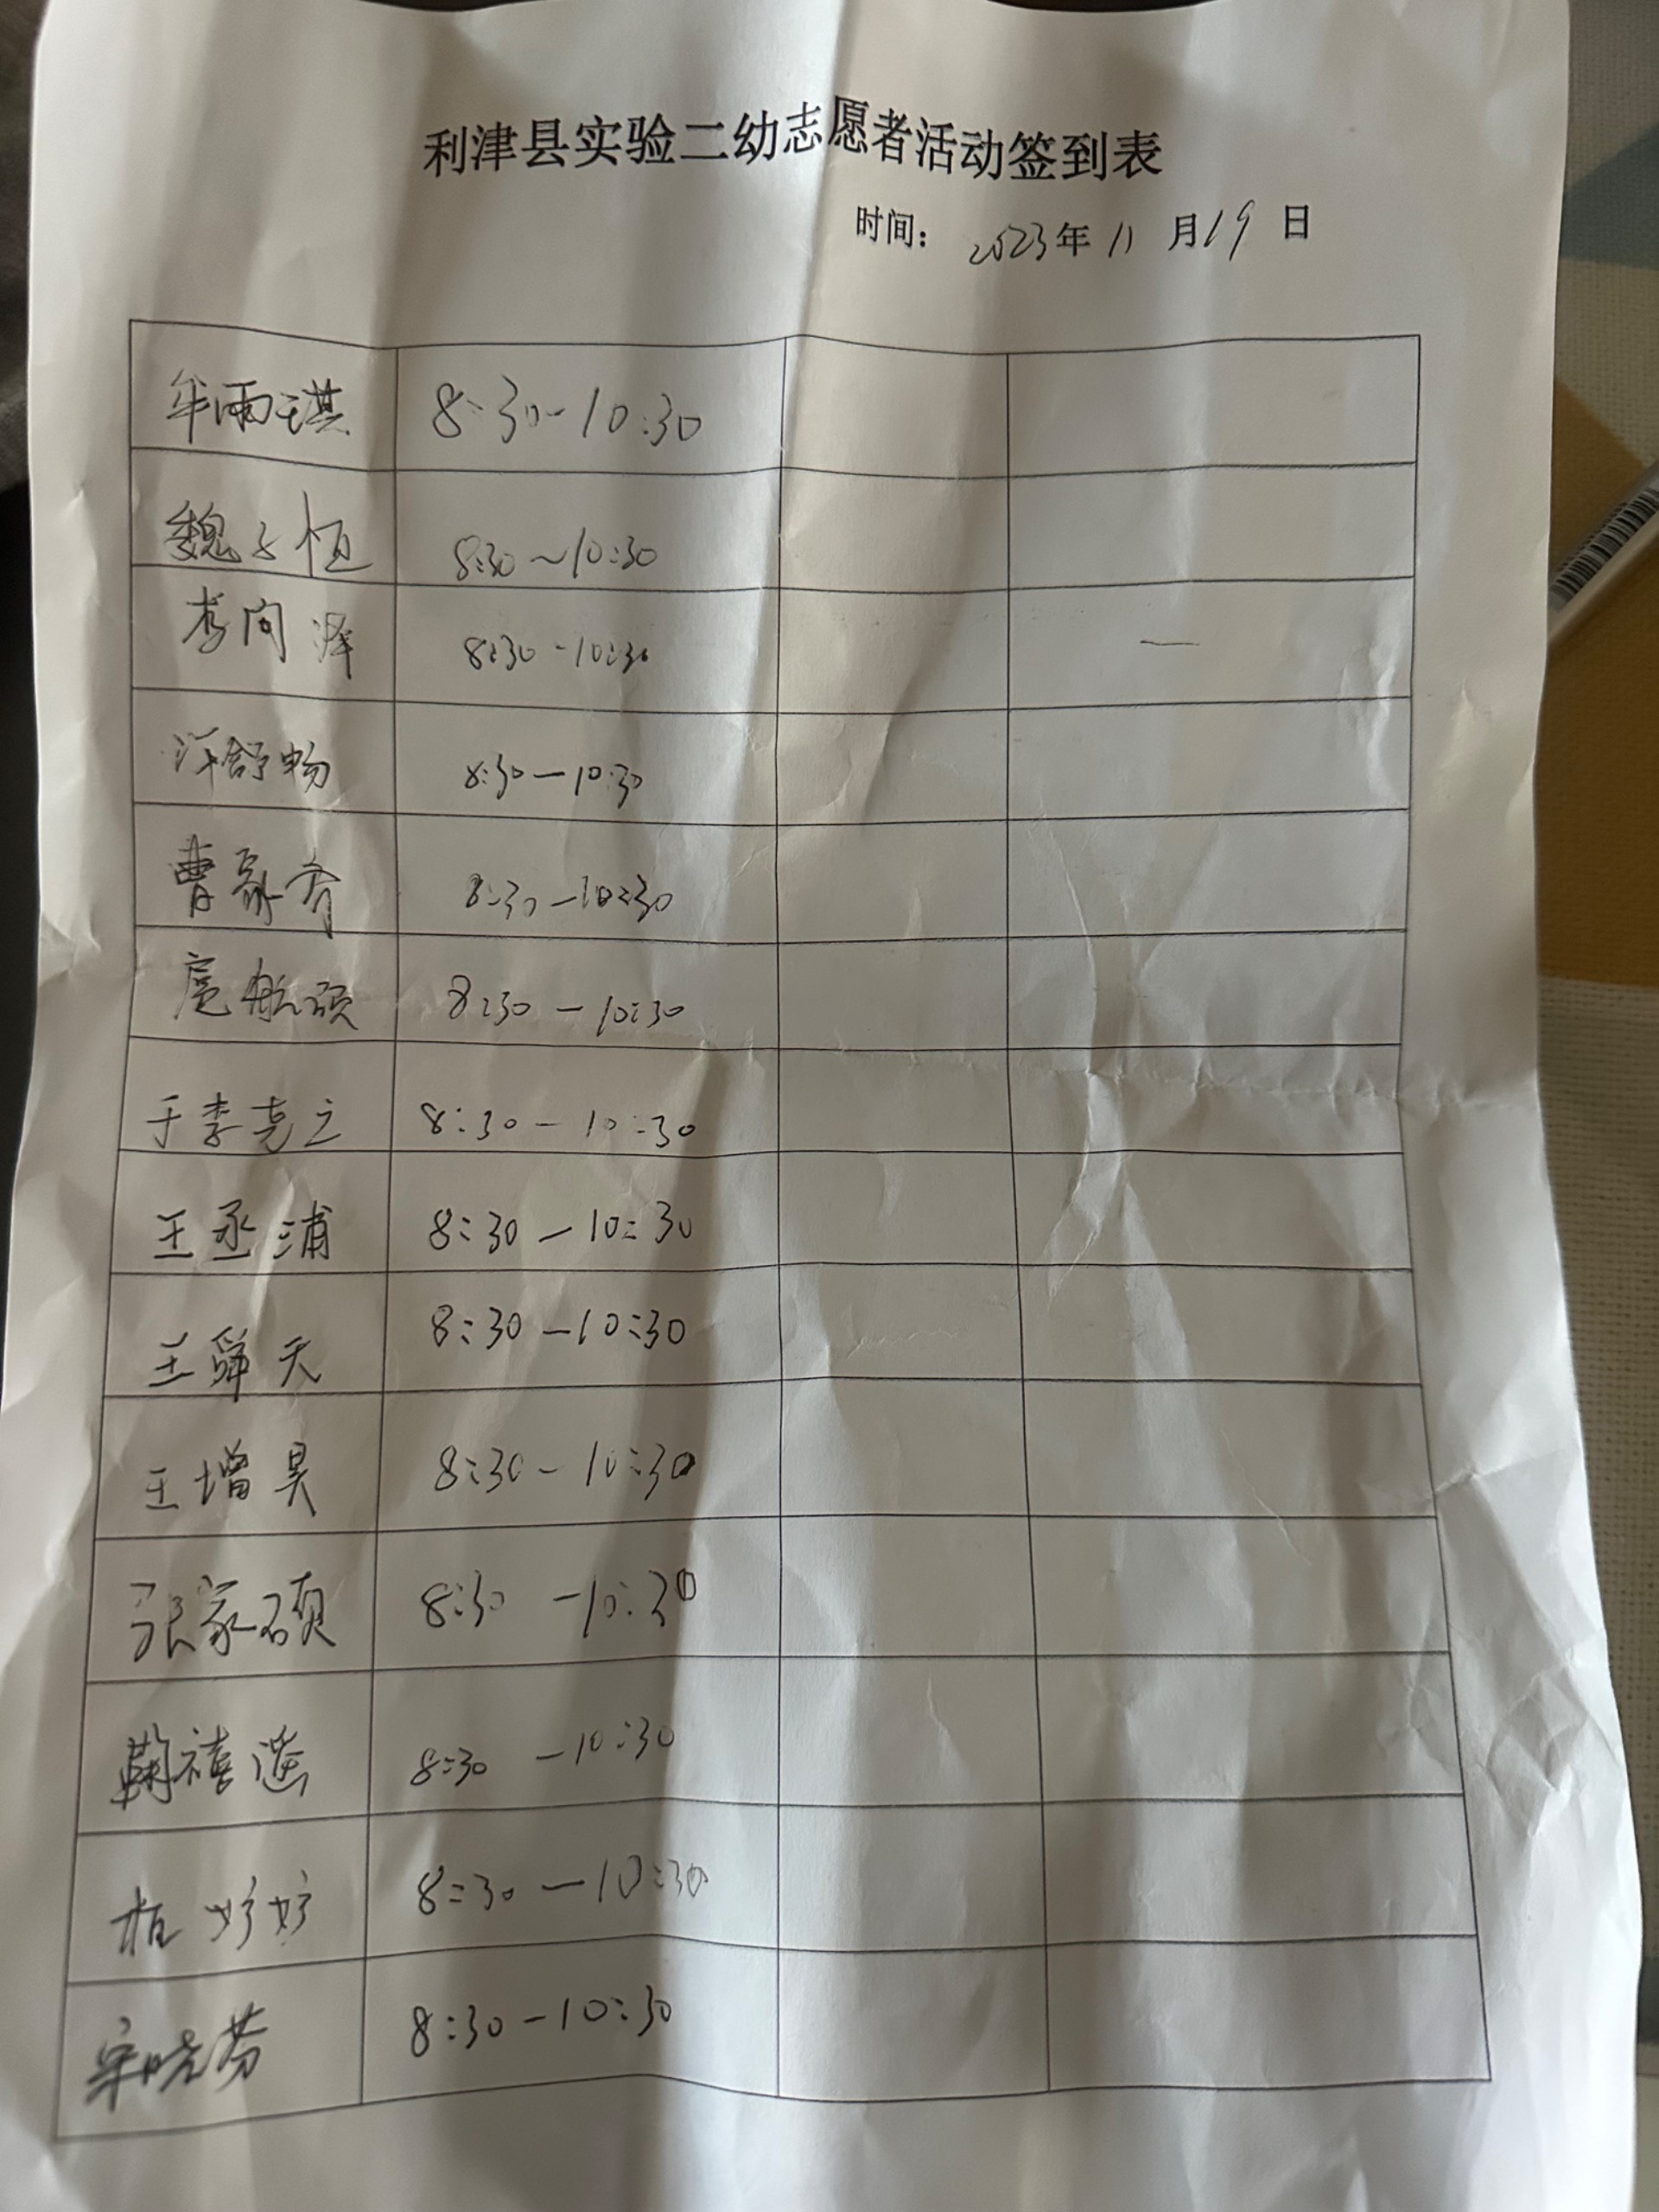 利津县实验二幼志愿者活动签到表
时间：2023年11月19日
牟雨琪 8:30-10:30
魏子恒 8:30~10:30
李向泽 8:30-10:30
许舒畅 8:30—10:30
曹豪齐 8:30—10:30
扈航硕 8:30—10:30
于李克之 8:30—10:30
王丞浦 8:30—10:30
王舜天 8:30—10:30
王增昊 8:30—10:30
张家硕 8:30—10:30
鞠禧 8:30—10:30
桓好好 8:30—10:30
宋晓芬 8:30-10:30